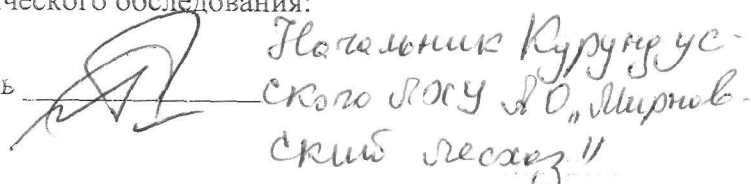 ческого обследования:
Начальник Курундус-
ь ского ЛХУ АО „Мирнов-
ский лесхоз"